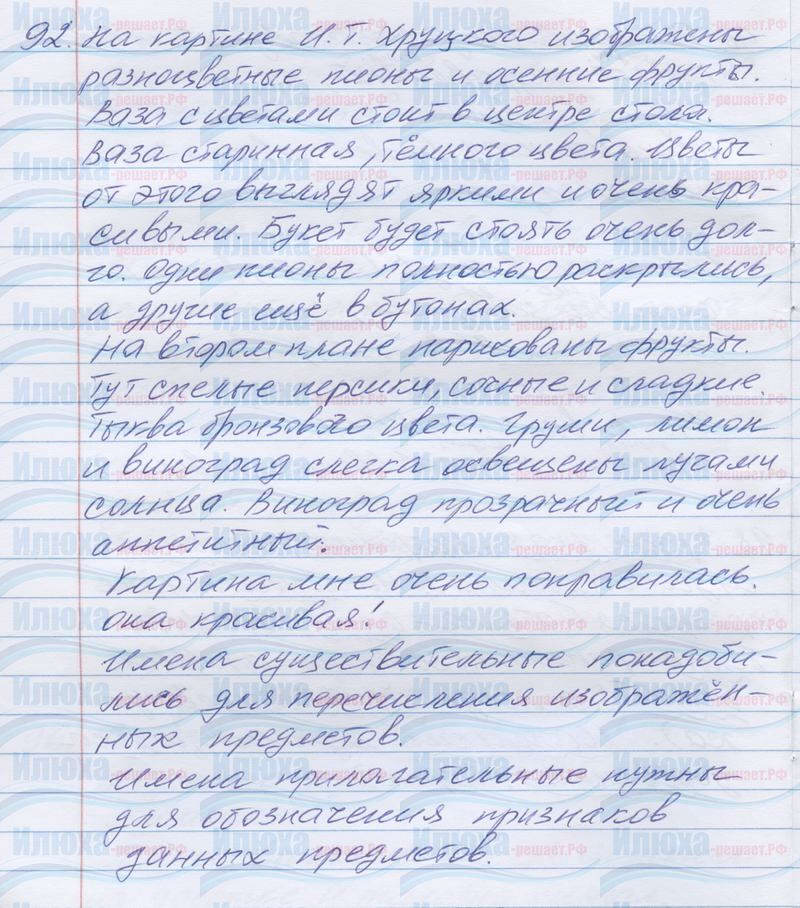 92. На картине И.Т. Хруцкого изображены
разноцветные пионы и осенние фрукты.
Ваза с цветами стоит в центре стола.
Ваза старинная, тёмного цвета. Цветы
от этого выглядят яркими и очень кра-
сивыми. Букет будет стоять очень дол-
го. Одни пионы полностью раскрылись,
а другие ещё в бутонах.
На втором плане нарисованы фрукты.
Тут спелые персики, сочные и сладкие.
Тыква бронзового цвета. Груши, лимон
и виноград слегка освещены лучами
солнца. Виноград прозрачный и очень
аппетитный.
Картина мне очень понравилась.
Она красивая!
Имена существительные понадоби-
лись для перечисления изображён-
ных предметов.
Имена прилагательные нужны
для обозначения признаков
данных предметов.